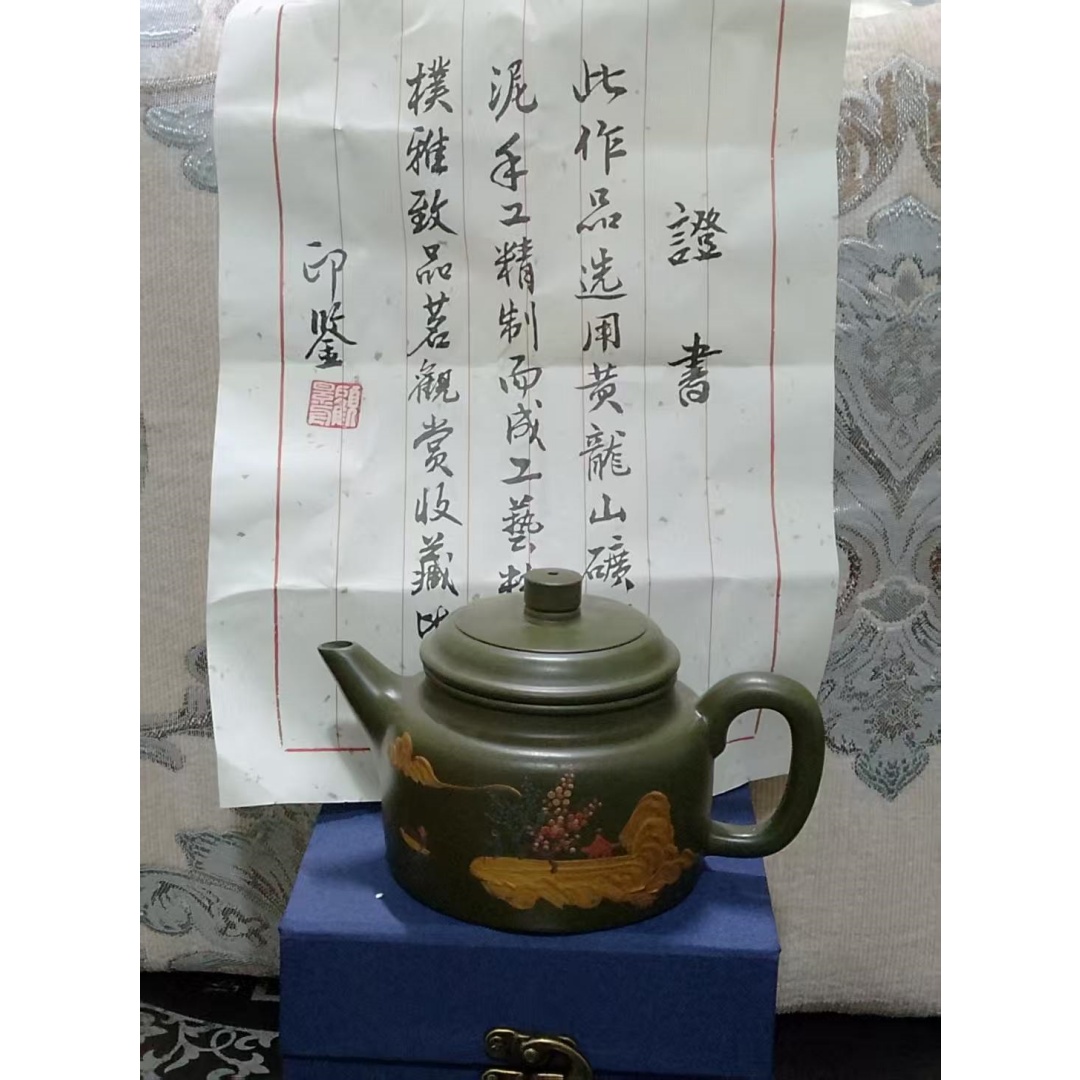 證書
此作品选用黄龍山礦
泥手工精制而成工藝
樸雅致品茗觀赏收藏
印鉴
顧景舟